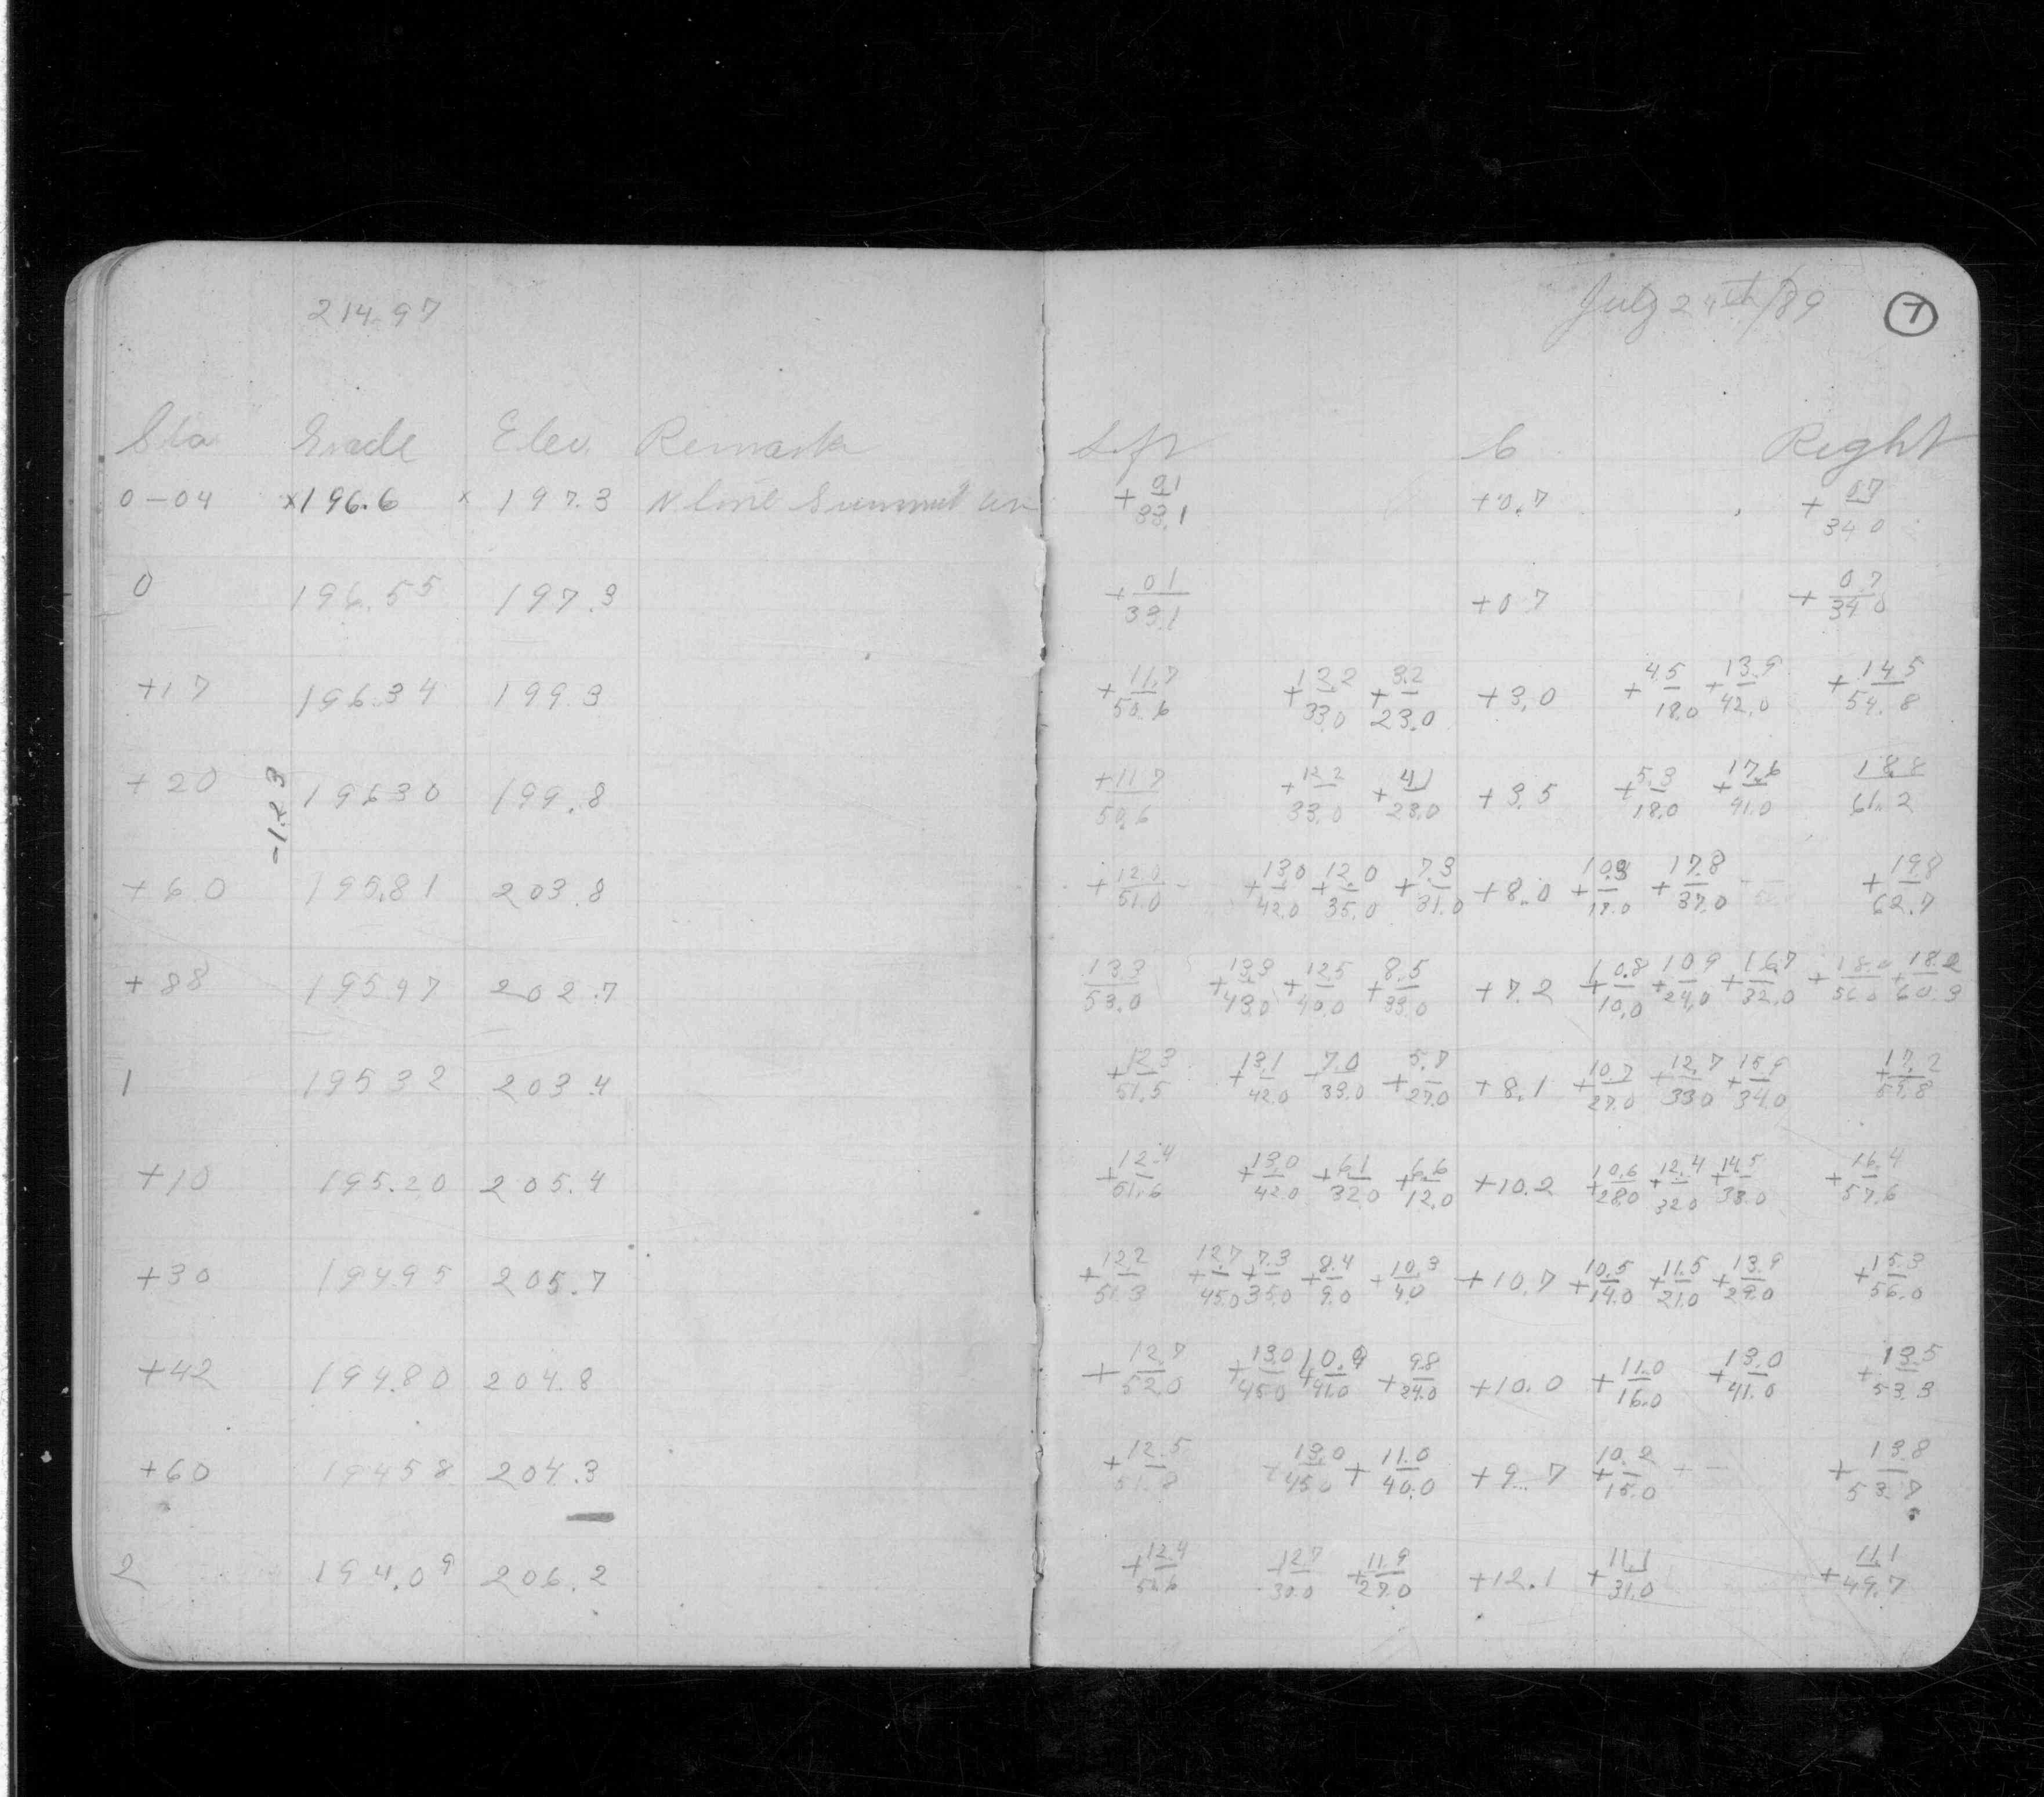 214.97
July 24th/89 7
Sta Grade Elev. Remarks Left C Right
0-04 x196.6 x 197.3 N line Summit av +0.1/33.1 +0.7 +0.7/34.0
0 196.55 197.3 +0.1/33.1 +0.7 +0.7/34.0
+17 196.34 199.3 +11.7/50.6 +12.2/33.0 +3.2/23.0 +3.0 +4.5/18.0 +13.9/42.0 +14.5/54.8
-1.23
+20 196.30 199.8 +11.7/50.6 +12.2/33.0 +4.1/23.0 +3.5 +5.3/18.0 +17.6/41.0 18.8/61.2
+60 195.81 203.8 +12.0/51.0 +13.0/42.0 +12.0/35.0 +7.3/31.0 +8.0 +10.3/17.0 +17.8/37.0 +19.8/62.7
+88 195.47 202.7 13.3/53.0 +13.3/43.0 +12.5/40.0 +8.5/33.0 +7.2 +10.8/10.0 +10.9/24.0 +16.7/32.0 +18.0/56.0 +18.2/60.3
1 195.32 203.4 +12.3/51.5 +13.1/42.0 +7.0/33.0 +5.7/27.0 +8.1 +10.7/27.0 +12.7/33.0 +15.9/34.0 +17.2/58.8
+10 195.20 205.4 +12.4/51.6 +13.0/42.0 +6.1/32.0 +6.6/12.0 +10.2 +10.6/28.0 +12.4/32.0 +14.5/33.0 +16.4/57.6
+30 194.95 205.7 +12.2/51.3 +12.7/45.0 +7.3/35.0 +8.4/9.0 +10.3/4.0 +10.7 +10.5/14.0 +11.5/21.0 +13.9/29.0 +15.3/56.0
+42 194.80 204.8 +12.7/52.0 +13.0/45.0 +10.9/41.0 +9.8/24.0 +10.0 +11.0/16.0 +13.0/41.0 +13.5/53.3
+60 194.58 204.3 +12.5/51.8 +13.0/45.0 +11.0/40.0 +9.7 +10.2/15.0 +13.8/53.7
2 194.09 206.2 +12.4/51.6 12.7/30.0 +11.9/27.0 +12.1 +11.1/31.0 +11.1/49.7